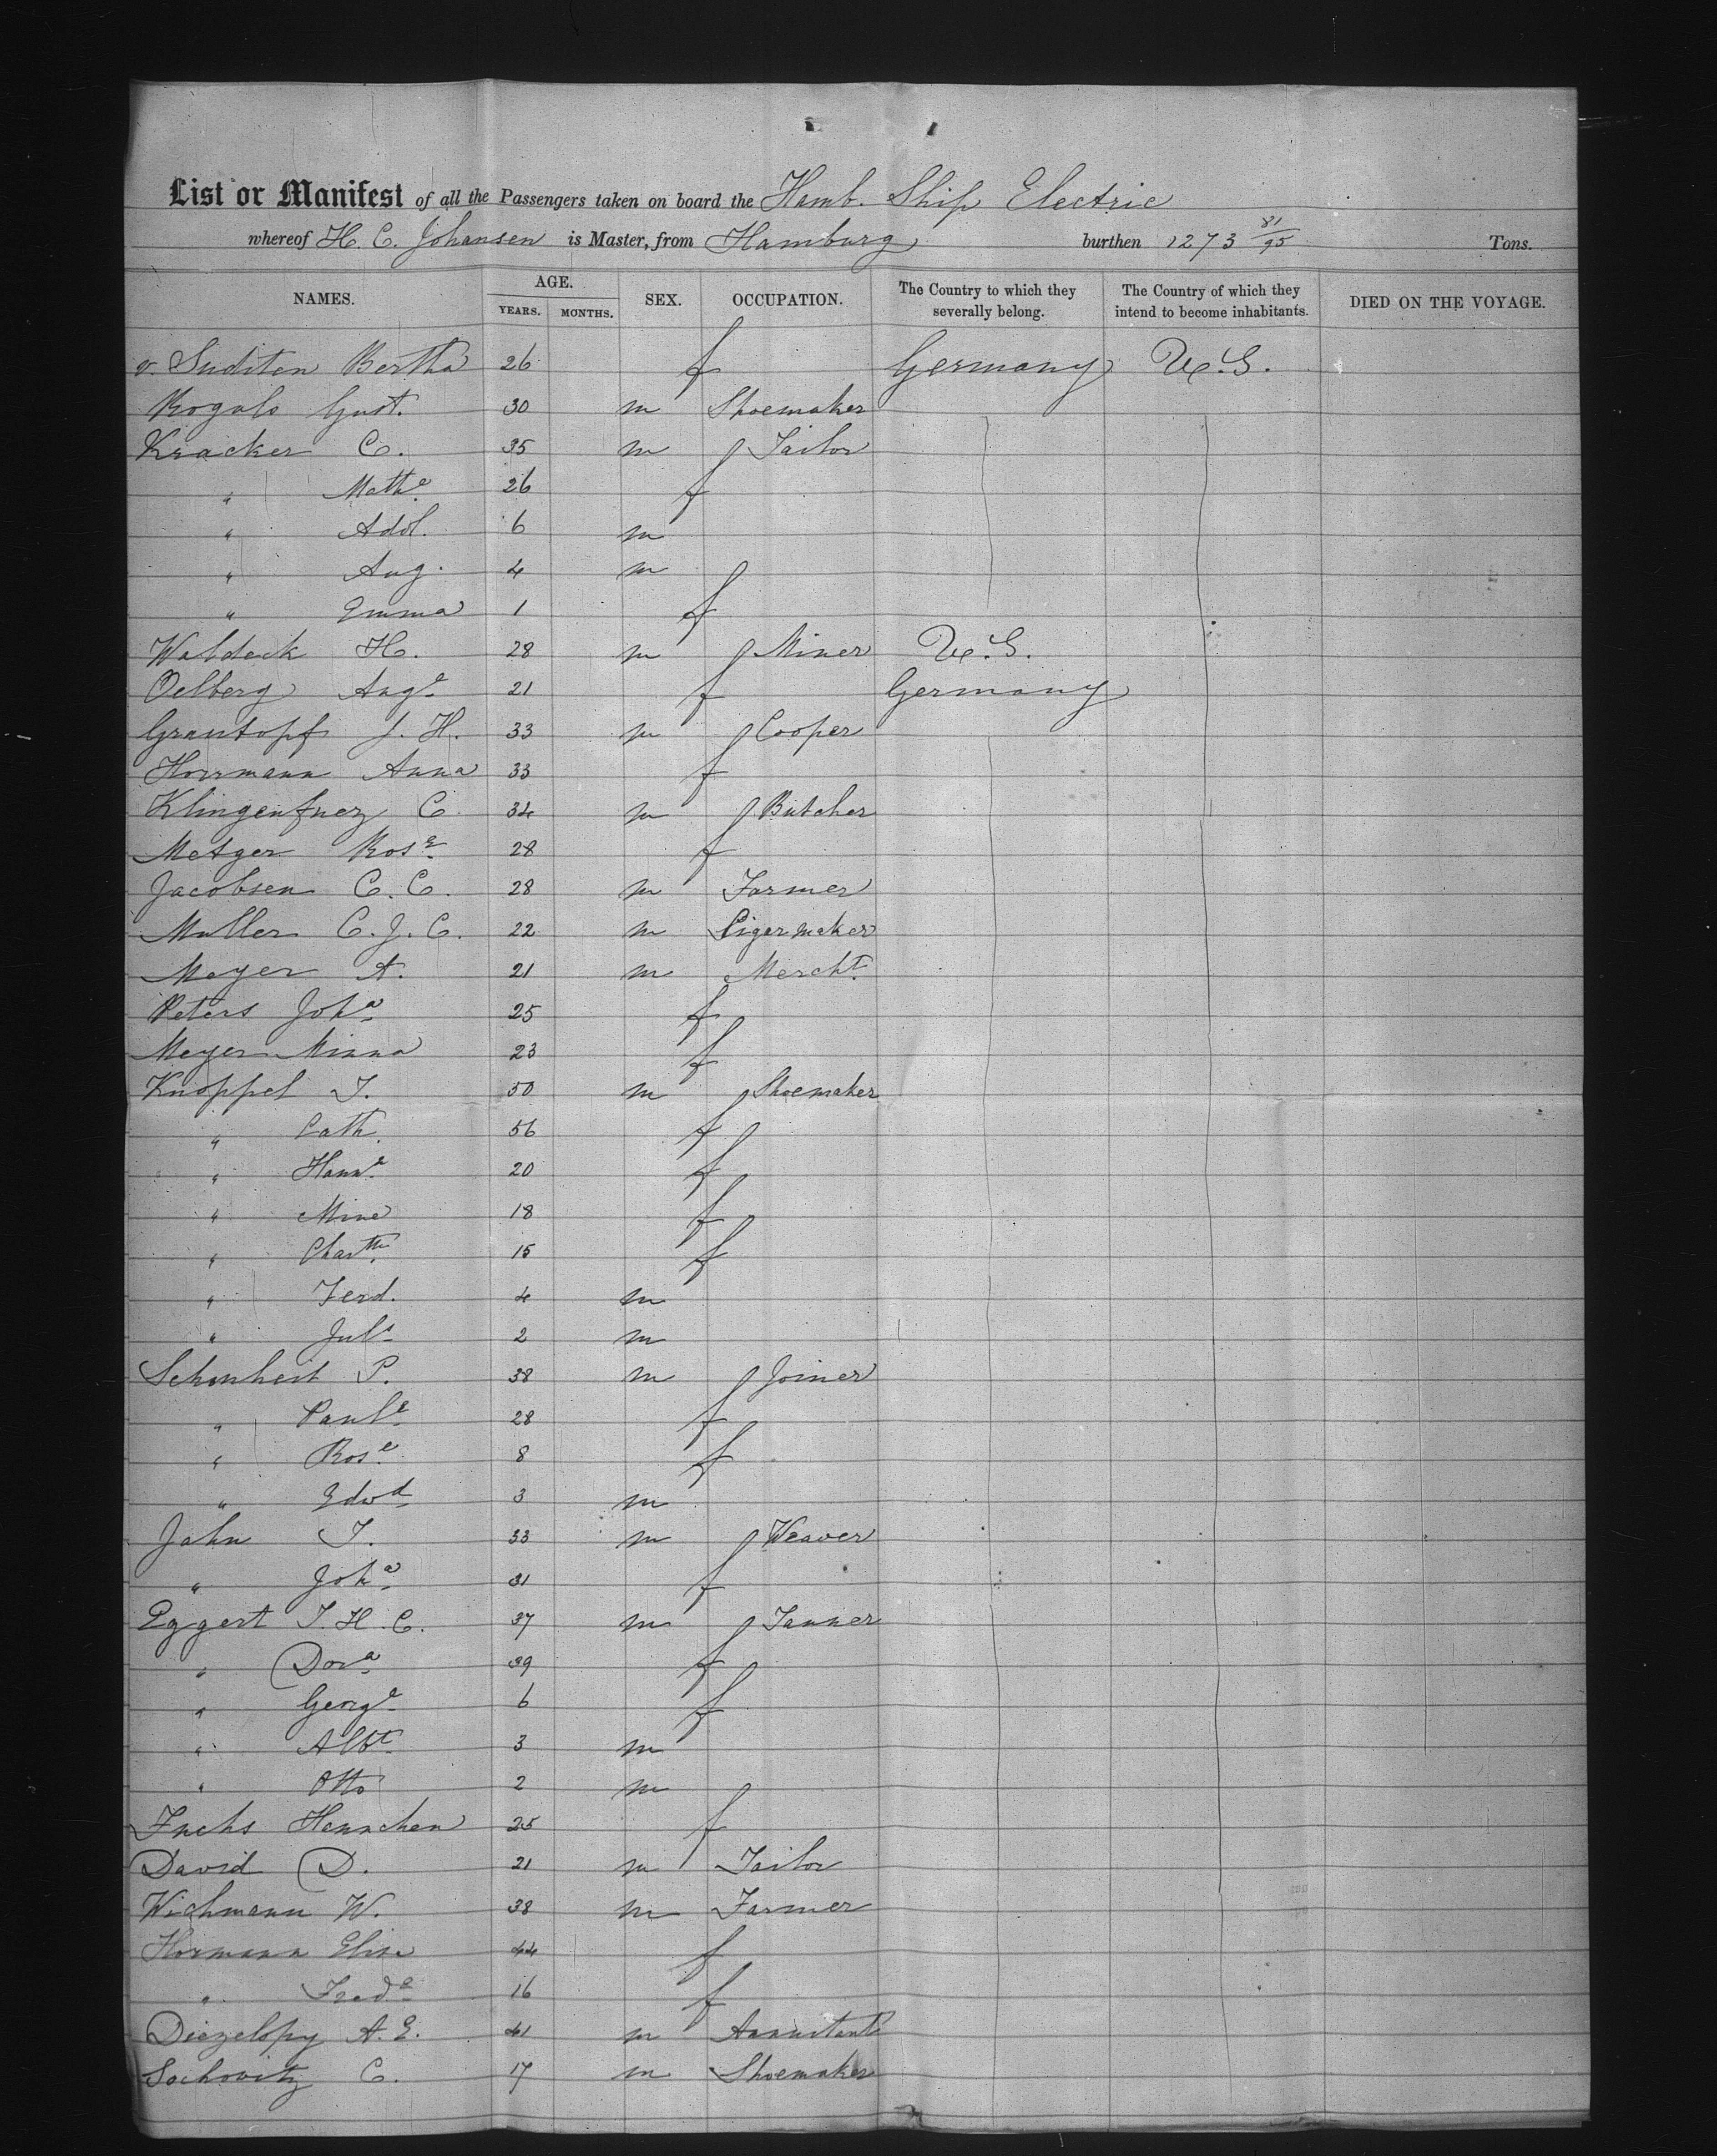 List or Manifest of all the Passengers taken on board the Hamb. Ship Electric
whereof H. C. Johansen is Master, from Hamburg burthen 1273 81/95 Tons.
NAMES. AGE. YEARS. MONTHS. SEX. OCCUPATION. The Country to which they severally belong. The Country of which they intend to become inhabitants. DIED ON THE VOYAGE.
v. Suditen Bertha 26 f Germany U.S.
Rogalo Gust. 30 m Shoemaker
Kracker C. 35 m Tailor
" Mathe. 26 f
" Adol. 6 m
" Aug. 4 m
" Emma 1 f
Waldeck H. 28 m Miner U.S.
Oelberg Auge 21 f Germany
Grautopf J. H. 33 m Cooper
Horrmann Anna 33 f
Klingenfuez C. 34 m Butcher
Metzger Rose 28 f
Jacobsen C. C. 28 m Farmer
Muller C. J. C. 22 m Cigarmaker
Meyer A. 21 m Mercht.
Peters Joha 25 f
Meyer Minna 23 f
Knoppel J. 50 m Shoemaker
" Cath. 56 f
" Hanne 20 f
" Mine 18 f
" 15 f
" Ferd. 4 m
" Juls 2 m
Schonheit P. 38 m Joiner
" Paule 28 f
" Rose 8 f
" Edwd 3 m
Jahn J. 33 m Weaver
" Joha 31 f
Eggert J. H. C. 37 m Tanner
" Dora 39 f
" George 6 f
" Albt 3 m
" Otto 2 m
Fuchs Hannchen 25 f
David D. 21 m Tailor
Wichmann W. 38 m Farmer
Hormann Elise 44 f
" Frede 16 f
A. E. 41 m
Sochovitz C. 17 m Shoemaker